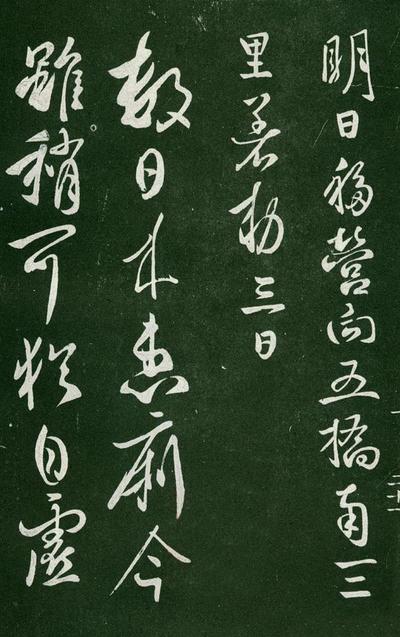 明日移營向五橋南三
里三日
數日來患痢今
雖稍可猶自虛